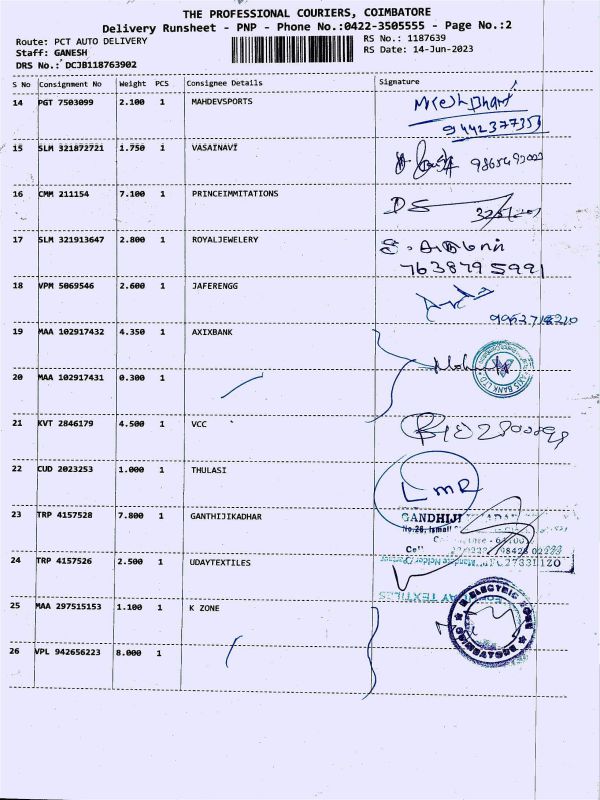 THE PROFESSIONAL COURIERS, COIMBATORE
Delivery Runsheet - PNP - Phone No.:0422-3505555 - Page No.:2
Route: PCT AUTO DELIVERY RS No.: 1187639
Staff: GANESH RS Date: 14-Jun-2023
DRS No.: DCJB118763902
S No Consignment No Weight PCS Consignee Details Signature
14 PGT 7503099 2.100 1 MAHDEVSPORTS
9442377353
15 SLM 321872721 1.750 1 VASAINAVI
16 CMM 211154 7.100 1 PRINCEIMMITATIONS
DS
17 SLM 321913647 2.800 1 ROYALJEWELERY
7638795991
18 VPM 5069546 2.600 1 JAFERENGG
19 MAA 102917432 4.350 1 AXIXBANK
AXIS BANK LTD
20 MAA 102917431 0.300 1
21 KVT 2846179 4.500 1 VCC
22 CUD 2023253 1.000 1 THULASI
LMR
23 TRP 4157528 7.800 1 GANTHIJIKADHAR
GANDHIJI
No.28, Ismail
24 TRP 4157526 2.500 1 UDAYTEXTILES
TEXTILES
25 MAA 297515153 1.100 1 K ZONE
ELECTRIC ZONE
COIMBATORE
26 VPL 942656223 8.000 1